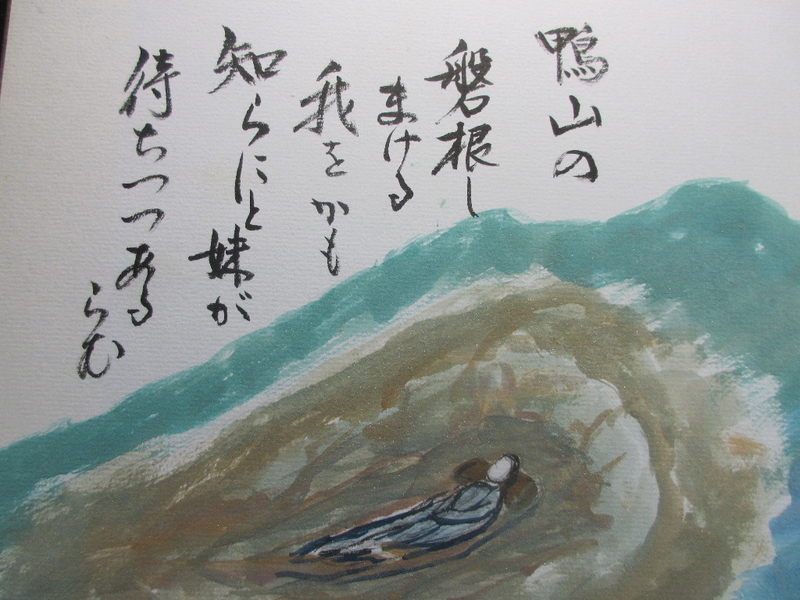 鴨山の
磐根し
まける
我をかも
知らにと妹が
待ちつつある
らむ